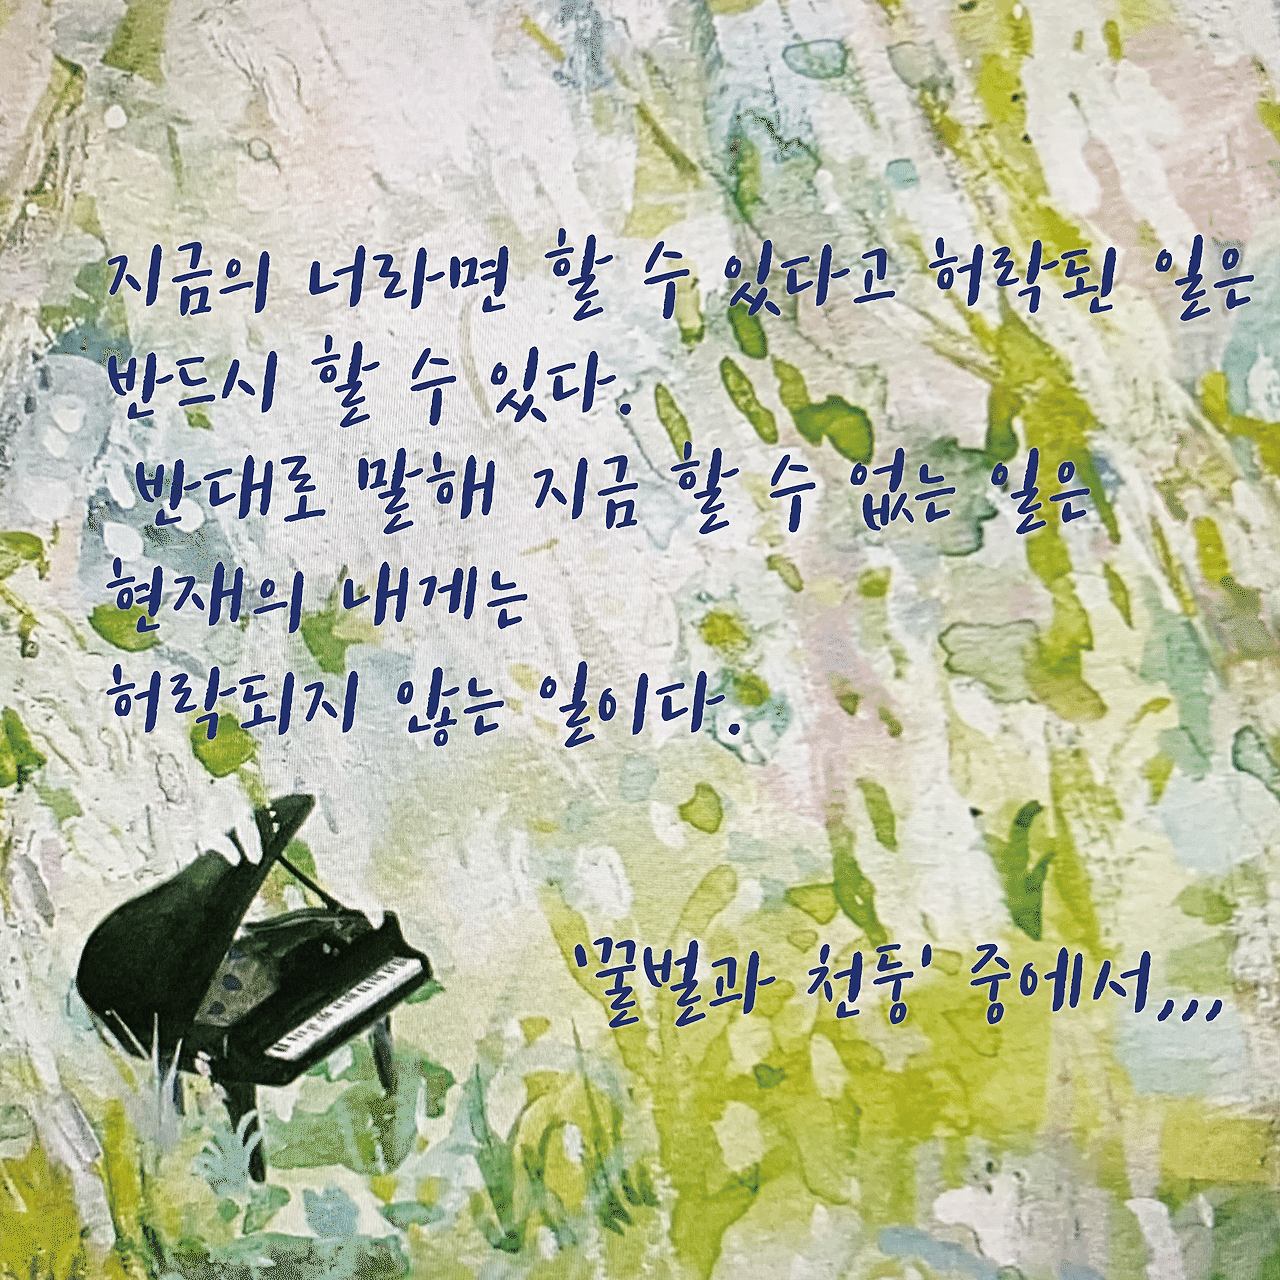 지금의 너라면 할 수 있다고 허락된 일은
반드시 할 수 있다.
반대로 말해 지금 할 수 없는 일은
현재의 내게는
허락되지 않는 일이다.
'꿀벌과 천둥' 중에서,,,